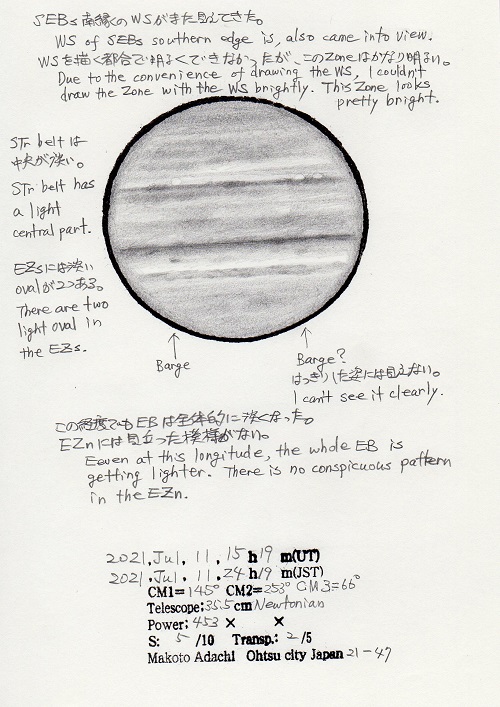 SEBs南縁のWSがまた見えてきた。
WS of SEBs southern edge is, also came into view.
WSを描く都合で明るくできなかったが、このZoneはかなり明るい。
Due to the convenience of drawing the WS, I couldn't
draw the Zone with the WS brightly. This Zone looks
pretty bright.
STr beltは
中央が淡い。
STr belt has
a light
central part.
EZsには淡い
ovalが2つある。
There are two
light oval in
the EZs.
Barge
Barge?
はっきりした姿には見えない。
I can't see it clearly.
この経度でもEBは全体的に淡くなった。
EZnには目立った模様がない。
Eeven at this longitude, the whole EB is
getting lighter. There is no conspicuous pattern
in the EZn.
2021, Jul, 11, 15 h 19 m(UT)
2021, Jul, 11, 24 h 19 m(JST)
CM1=145° CM2=253° CM3=66°
Telescope; 35.5 cm Newtonian
Power; 453 × ×
S: 5 /10 Transp.; 2 /5
Makoto Adachi Ohtsu city Japan 21-47